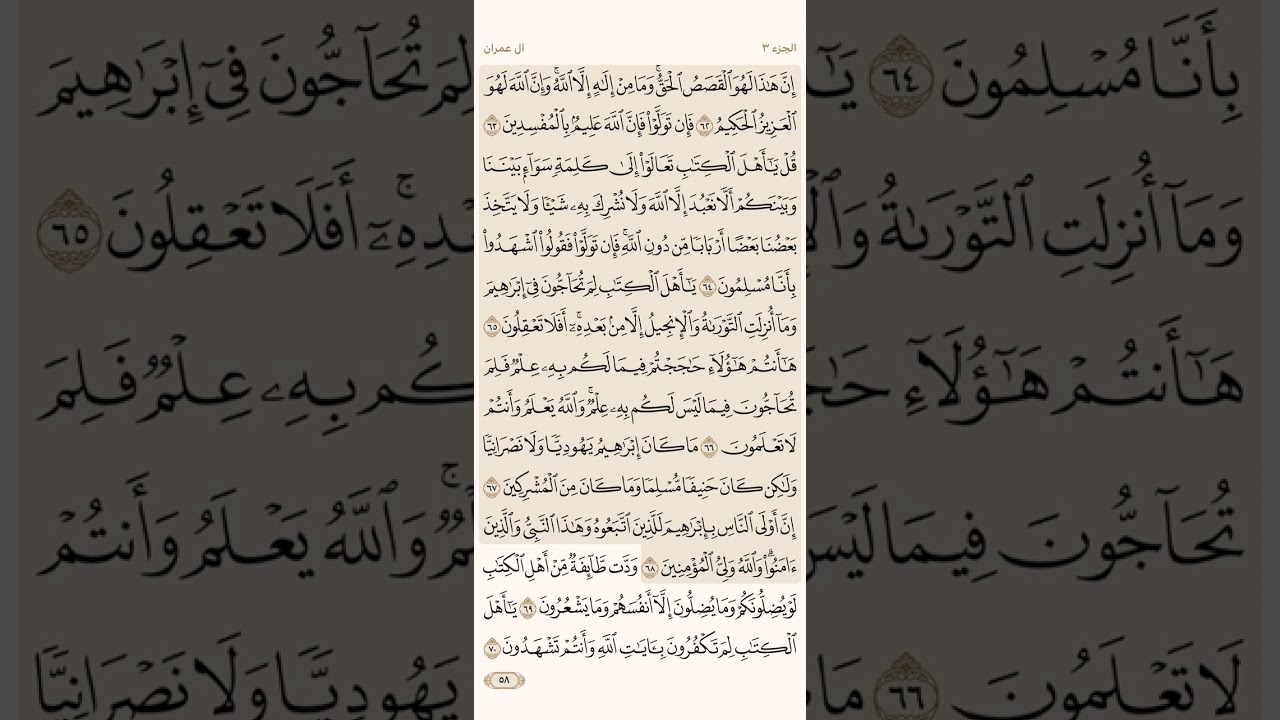 الجزء ٣
آل عمران
إِنَّ هَٰذَا لَهُوَ ٱلْقَصَصُ ٱلْحَقُّ ۚ وَمَا مِنْ إِلَٰهٍ إِلَّا ٱللَّهُ ۚ وَإِنَّ ٱللَّهَ لَهُوَ
ٱلْعَزِيزُ ٱلْحَكِيمُ ٦٢ فَإِن تَوَلَّوْا۟ فَإِنَّ ٱللَّهَ عَلِيمٌۢ بِٱلْمُفْسِدِينَ ٦٣
قُلْ يَٰٓأَهْلَ ٱلْكِتَٰبِ تَعَالَوْا۟ إِلَىٰ كَلِمَةٍ سَوَآءٍۭ بَيْنَنَا
وَبَيْنَكُمْ أَلَّا نَعْبُدَ إِلَّا ٱللَّهَ وَلَا نُشْرِكَ بِهِۦ شَيْـًٔا وَلَا يَتَّخِذَ
بَعْضُنَا بَعْضًا أَرْبَابًا مِّن دُونِ ٱللَّهِ ۚ فَإِن تَوَلَّوْا۟ فَقُولُوا۟ ٱشْهَدُوا۟
بِأَنَّا مُسْلِمُونَ ٦٤ يَٰٓأَهْلَ ٱلْكِتَٰبِ لِمَ تُحَآجُّونَ فِىٓ إِبْرَٰهِيمَ
وَمَآ أُنزِلَتِ ٱلتَّوْرَىٰةُ وَٱلْإِنجِيلُ إِلَّا مِنۢ بَعْدِهِۦٓ ۚ أَفَلَا تَعْقِلُونَ ٦٥
هَٰٓأَنتُمْ هَٰٓؤُلَآءِ حَٰجَجْتُمْ فِيمَا لَكُم بِهِۦ عِلْمٌ فَلِمَ
تُحَآجُّونَ فِيمَا لَيْسَ لَكُم بِهِۦ عِلْمٌ ۚ وَٱللَّهُ يَعْلَمُ وَأَنتُمْ
لَا تَعْلَمُونَ ٦٦ مَا كَانَ إِبْرَٰهِيمُ يَهُودِيًّا وَلَا نَصْرَانِيًّا
وَلَٰكِن كَانَ حَنِيفًا مُّسْلِمًا وَمَا كَانَ مِنَ ٱلْمُشْرِكِينَ ٦٧
إِنَّ أَوْلَى ٱلنَّاسِ بِإِبْرَٰهِيمَ لَلَّذِينَ ٱتَّبَعُوهُ وَهَٰذَا ٱلنَّبِىُّ وَٱلَّذِينَ
ءَامَنُوا۟ ۗ وَٱللَّهُ وَلِىُّ ٱلْمُؤْمِنِينَ ٦٨ وَدَّت طَّآئِفَةٌ مِّنْ أَهْلِ ٱلْكِتَٰبِ
لَوْ يُضِلُّونَكُمْ وَمَا يُضِلُّونَ إِلَّآ أَنفُسَهُمْ وَمَا يَشْعُرُونَ ٦٩ يَٰٓأَهْلَ
ٱلْكِتَٰبِ لِمَ تَكْفُرُونَ بِـَٔايَٰتِ ٱللَّهِ وَأَنتُمْ تَشْهَدُونَ ٧٠
٥٨